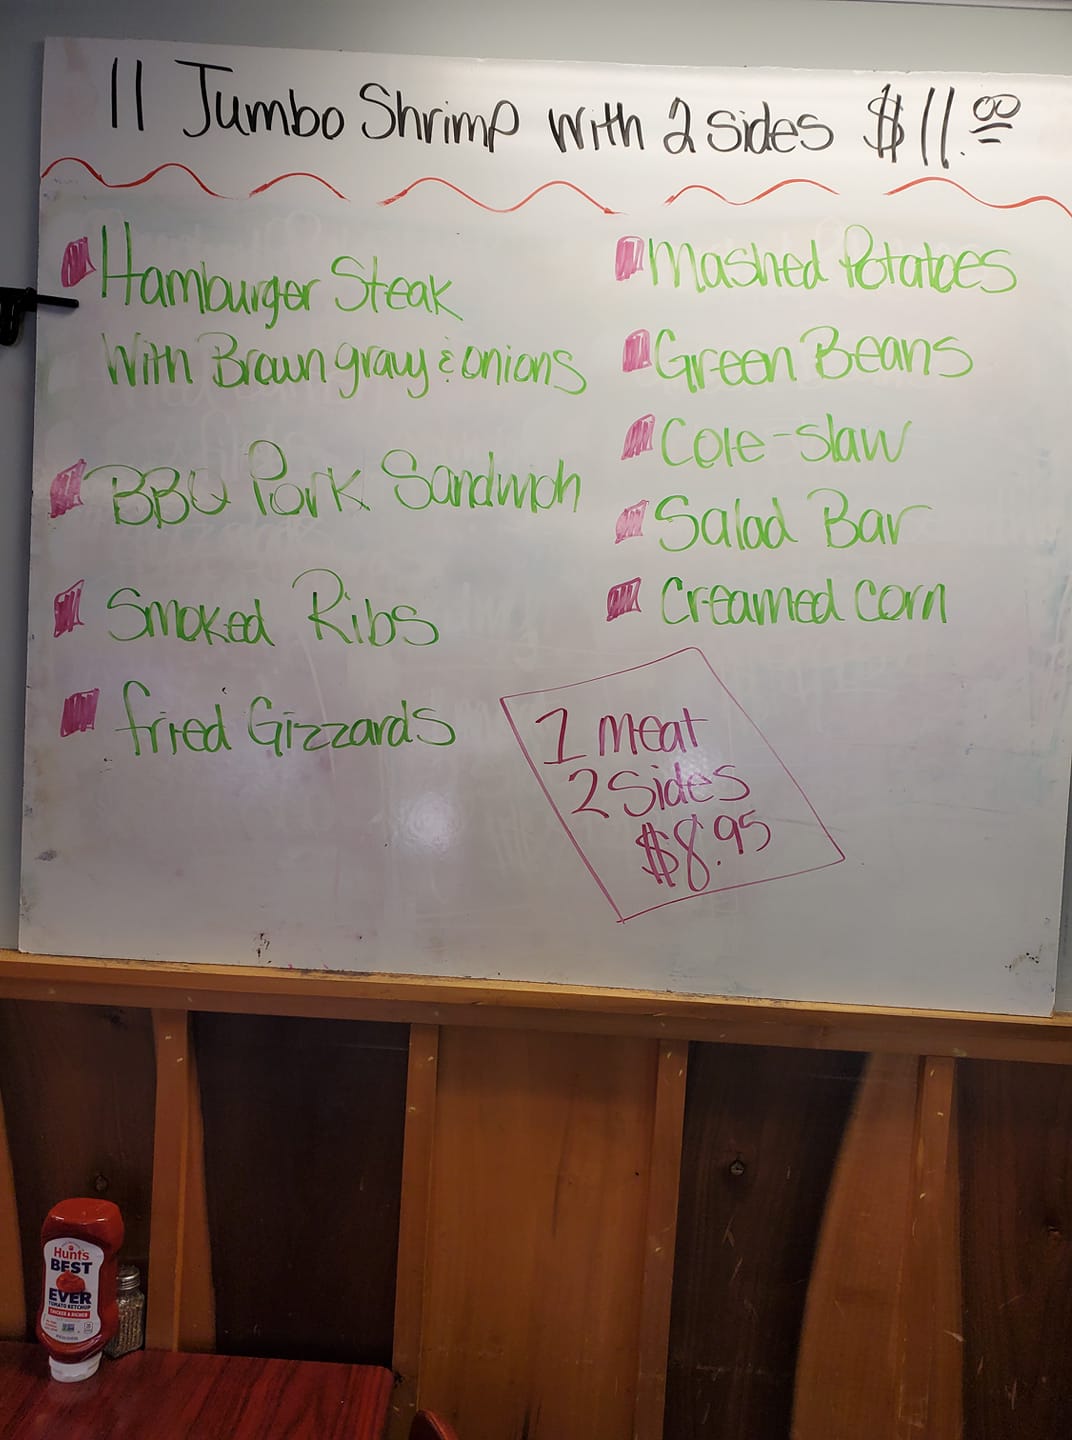 11 Jumbo Shrimp with 2 sides $11.00
Hamburger Steak
With Brown gravy & onions
BBQ Pork Sandwich
Smoked Ribs
fried Gizzards
Mashed Potatoes
Green Beans
Cole-Slaw
Salad Bar
Creamed Corn
1 meat
2 Sides
$8.95
Hunt's
BEST
EVER
TOMATO KETCHUP
THICKER & RICHER